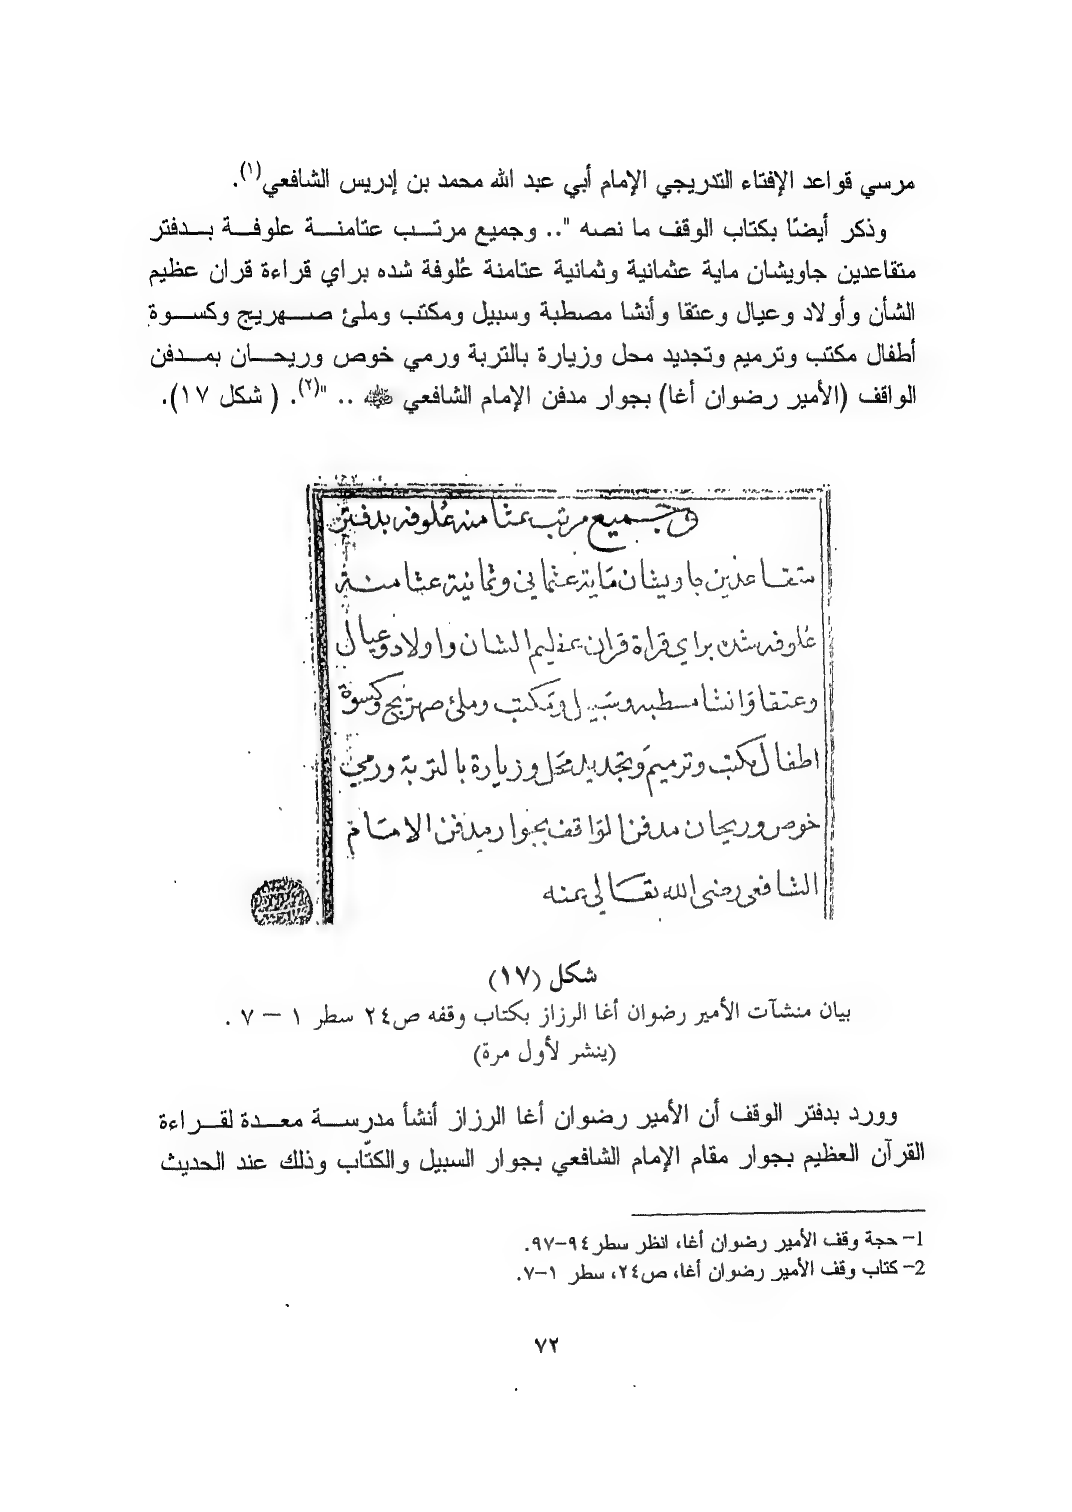 مرسي قواعد الإفتاء التدريجي الإمام أبي عبد الله محمد بن إدريس الشافعي(١).
وذكر أيضًا بكتاب الوقف ما نصه ".. وجميع مرتب عتامنة علوفة بدفتر
متقاعدين جاويشان ماية عثمانية وثمانية عتامنة علوفة شده براي قراءة قران عظيم
الشأن وأولاد وعيال وعتقا وأنشا مصطبة وسبيل ومكتب وملئ صهريج وكسوة
أطفال مكتب وترميم وتجديد محل وزيارة بالتربة ورمي خوص وريحان بمدفن
الواقف (الأمير رضوان أغا) بجوار مدفن الإمام الشافعي ﷺ .. "(٢). ( شكل ١٧).
وجميع مرتب عثامنه علوفه بدفتر
متقاعدين جاويشان ماية عثماني وثمانية عثامنة
علوفه شده براي قراة قران عظيم الشان واولاد وعيال
وعتقا وانشا مسطبه وسبيل ومكتب وملئ صهريج وكسوة
اطفال مكتب وترميم وتجديد محل وزيارة بالتربة ورمي
خوص وريحان مدفن الواقف بجوار مدفن الامام
الشافعي رضى الله تعالى عنه
شكل (١٧)
بيان منشآت الأمير رضوان أغا الرزاز بكتاب وقفه ص٢٤ سطر ١ – ٧ .
(ينشر لأول مرة)
وورد بدفتر الوقف أن الأمير رضوان أغا الرزاز أنشأ مدرسة معدة لقراءة
القرآن العظيم بجوار مقام الإمام الشافعي بجوار السبيل والكتّاب وذلك عند الحديث
1- حجة وقف الأمير رضوان أغا، انظر سطر ٩٤-٩٧.
2- كتاب وقف الأمير رضوان أغا، ص٢٤، سطر ١-٧.
٧٢